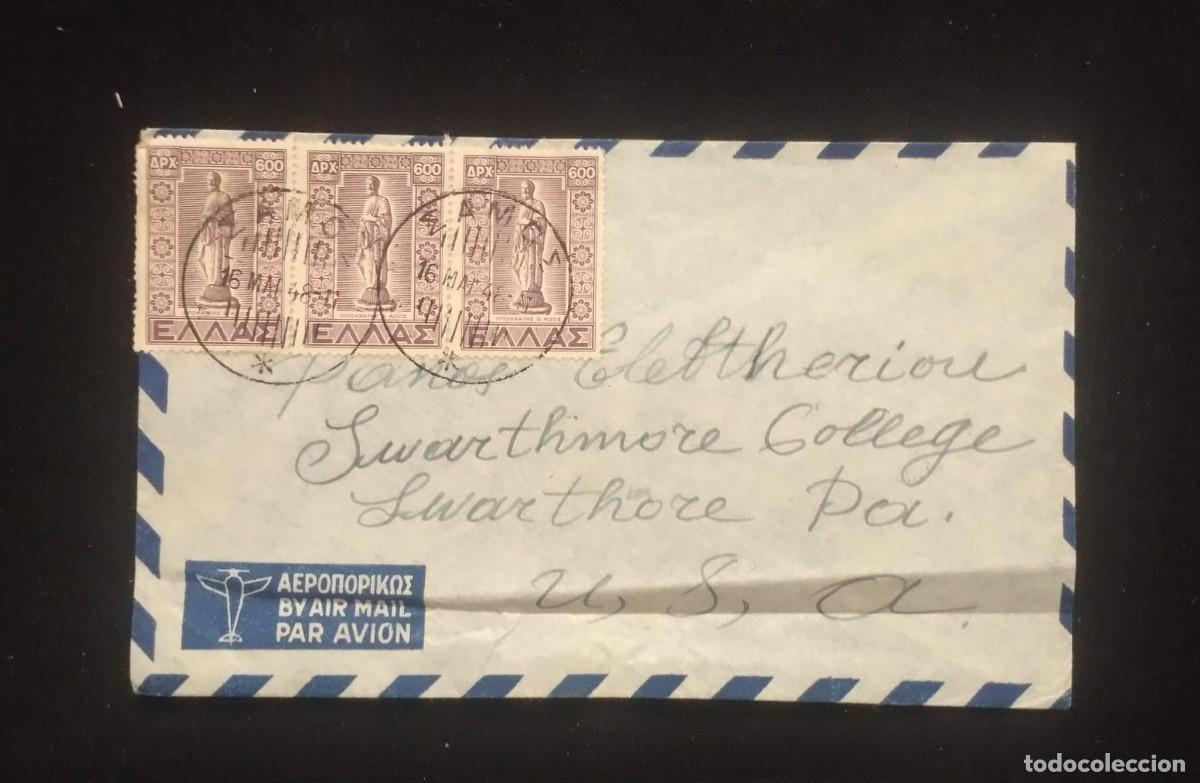 ΔΡΧ 600 ΔΡΧ 600 ΔΡΧ 600
ΣΑΜΟΣ
16 ΜΑΪ 48-
16 ΜΑΪ 48-
ΙΠΠΟΚΡΑΤΗΣ Ο ΚΩΟΣ ΙΠΠΟΚΡΑΤΗΣ Ο ΚΩΟΣ
ΕΛΛΑΣ ΕΛΛΑΣ ΕΛΛΑΣ
Panos Elebtheriou
Swarthmore College
Swarthore Pa.
U, S, a.
ΑΕΡΟΠΟΡΙΚΩΣ
BY AIR MAIL
PAR AVION
todocoleccion